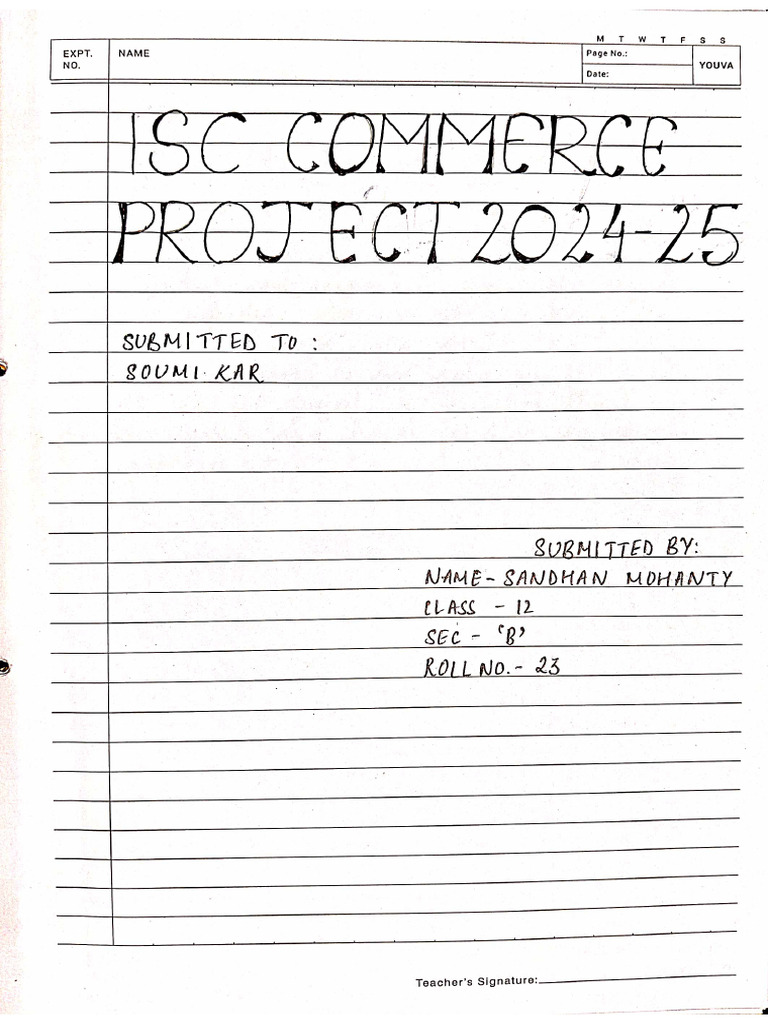 M T W T F S S
EXPT. NO.
NAME
Page No.:
YOUVA
Date:
ISC COMMERCE
PROJECT 2024-25
SUBMITTED TO :
SOUMI KAR
SUBMITTED BY:
NAME- SANDHAN MOHANTY
CLASS - 12
SEC - 'B'
ROLL NO.- 23
Teacher's Signature: